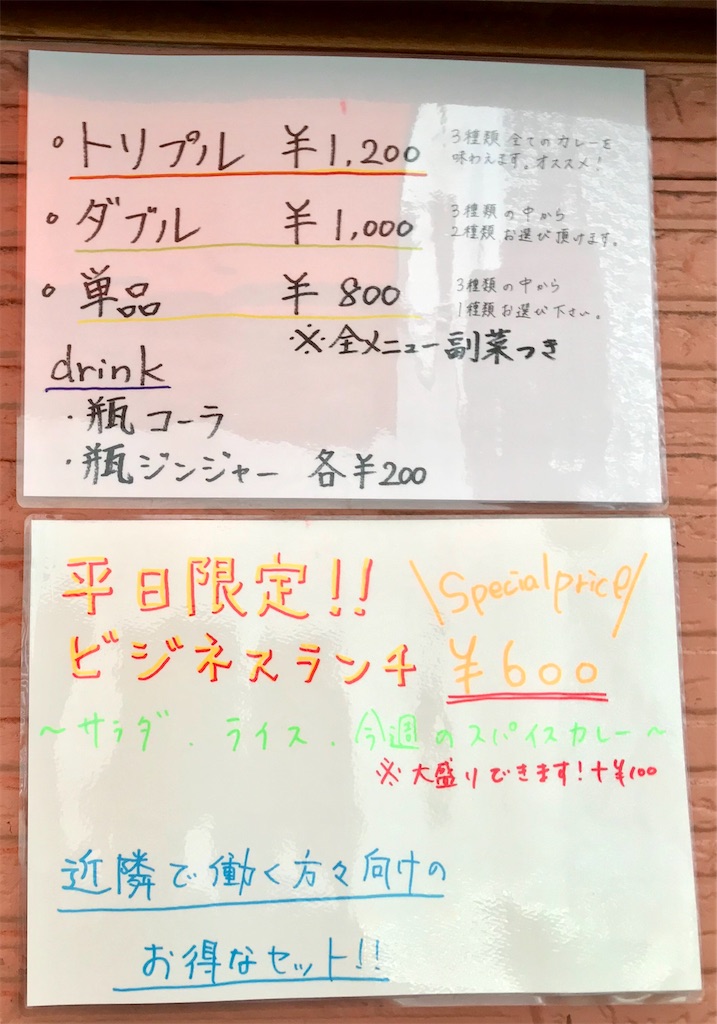 ・トリプル ¥1,200 3種類全てのカレーを
味わえます。オススメ!
・ダブル ¥1,000 3種類の中から
2種類お選び頂けます。
・単品 ¥800 3種類の中から
1種類お選び下さい。
※全メニュー副菜つき
drink
・瓶コーラ
・瓶ジンジャー 各¥200
平日限定!! \Special price/
ビジネスランチ ¥600
~サラダ.ライス.今週のスパイスカレー~
※大盛りできます!+¥100
近隣で働く方々向けの
お得なセット!!